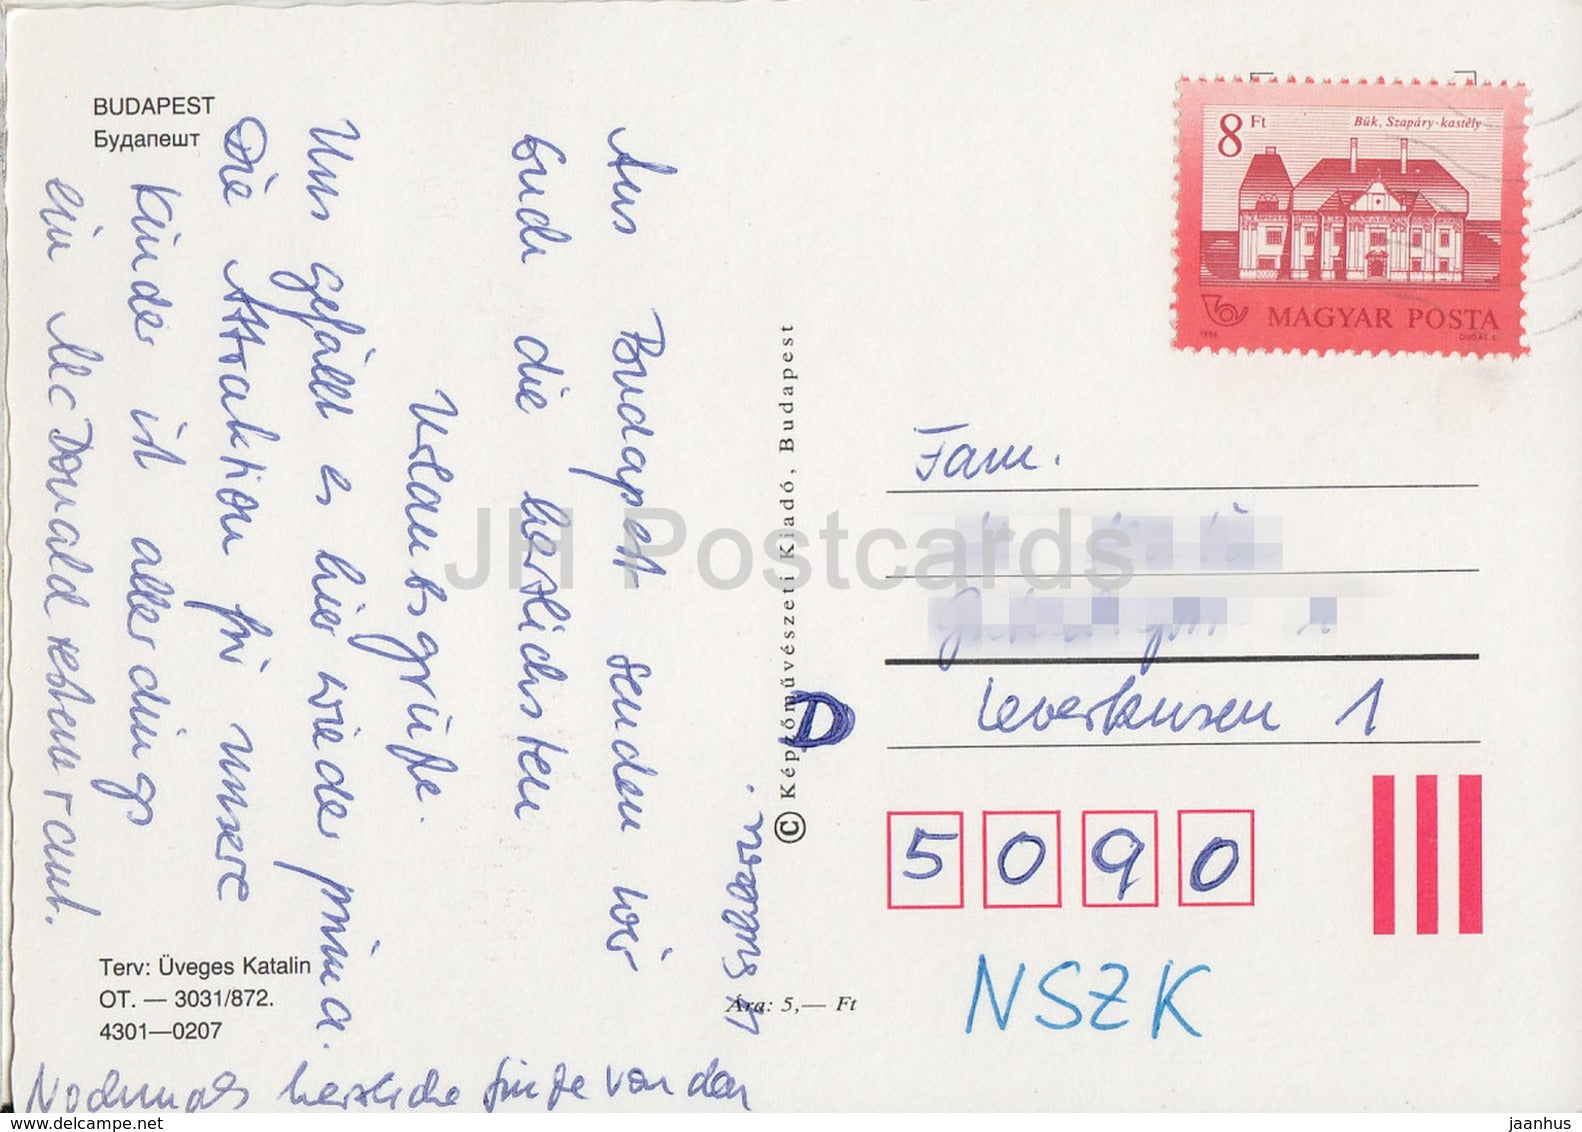 BUDAPEST
Будапешт
Aus Budapest senden wir
Euch die herzlichsten
Urlaubsgrüße.
Uns gefällt es hier wieder prima.
Die Attraktion für unsere
Kinder ist allerdings
ein McDonald restaurant.
Nochmals herzliche Grüße von den
Terv: Üveges Katalin
OT. — 3031/872.
4301—0207
Ára: 5,— Ft
© Képzőművészeti Kiadó, Budapest
8 Ft
Bük, Szapáry-kastély
MAGYAR POSTA
1986
DUDÁS L.
Fam.
D
Leverkusen 1
5090
NSZK
JH Postcards
delcampe.net
jaanhus